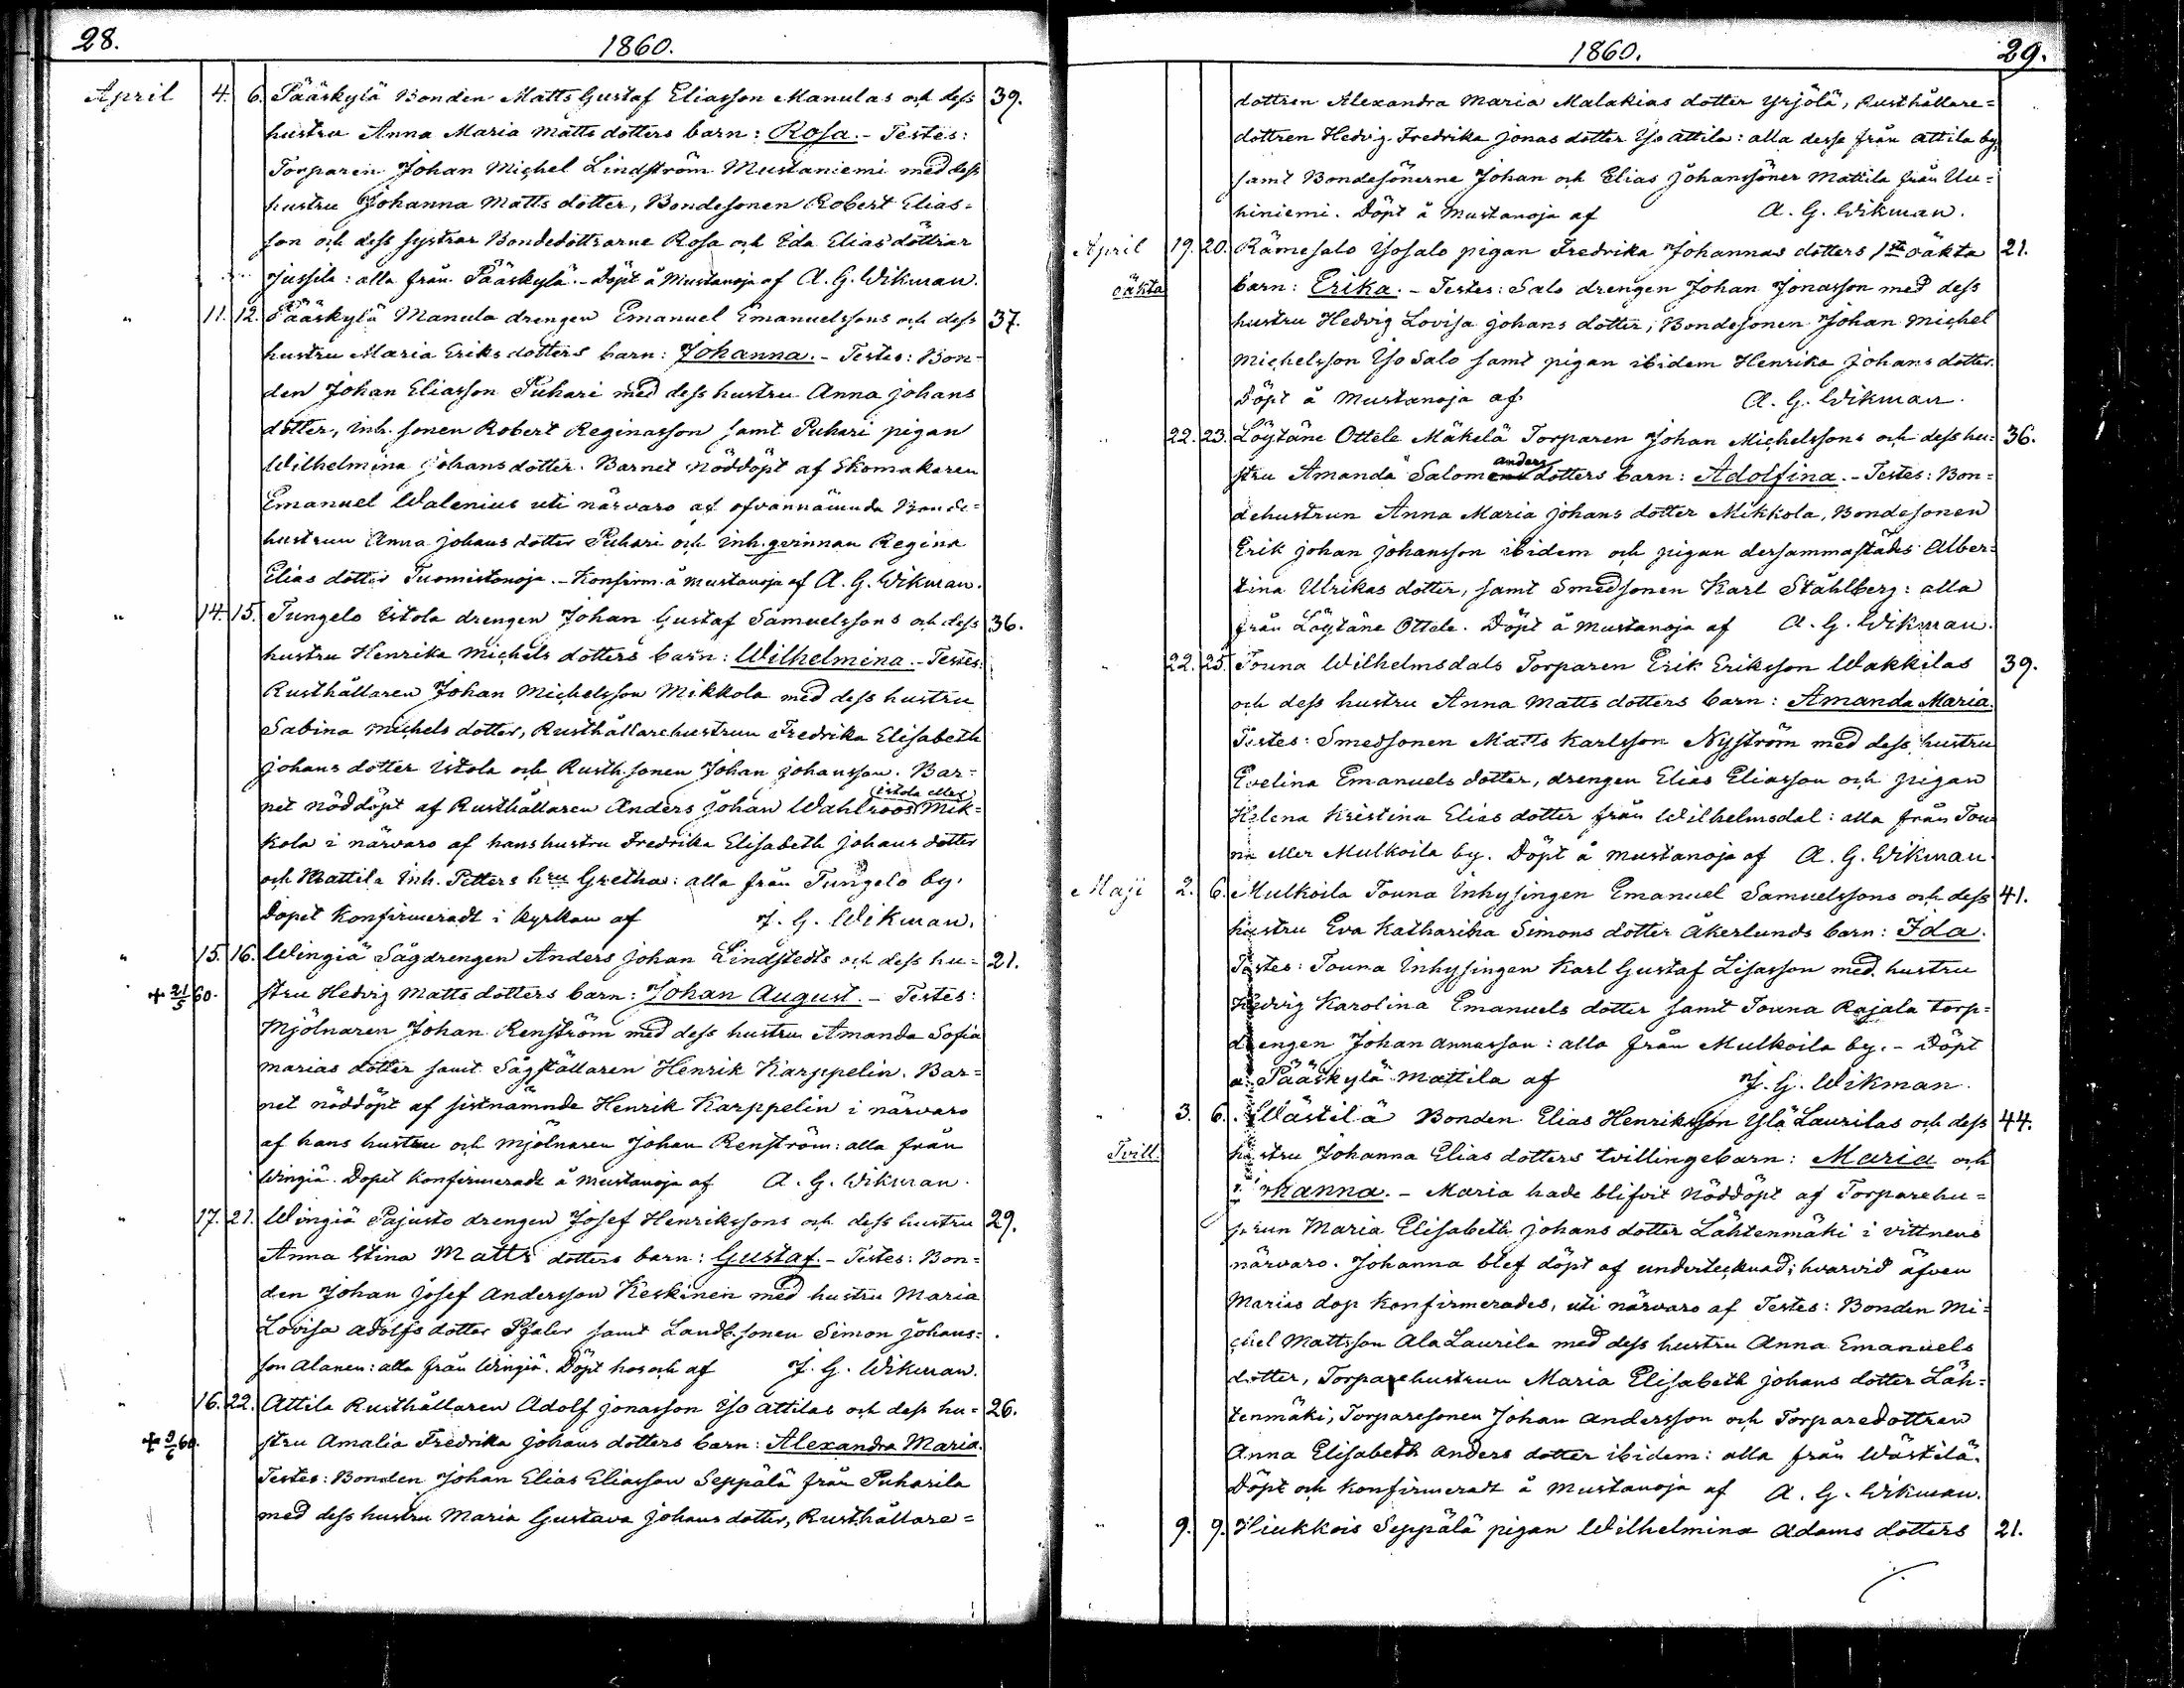 28.
1860.
April 4. 6. Pääskylä Bonden Matts Gustaf Eliasson Manulas och dess 39.
hustru Anna Maria Matts dotters barn: Rosa. - Testes:
Torparen Johan Michel Lindström Mustaniemi med dess
hustru Johanna Matts dotter, Bondesonen Robert Elias-
son och dess systrar Bondedöttrarne Rosa och Ida Elias döttrar
Jussila: alla från Pääskylä. - Döpt å Mustanoja af A. G. Wikman.
" 11. 12. Pääskylä Manula drengen Emanuel Emanuelssons och dess 37.
hustru Maria Eriks dotters barn: Johanna. - Testes: Bon-
den Johan Eliasson Puhari med dess hustru Anna Johans
dotter, Inh. sonen Robert Reginasson samt Puhari pigan
Wilhelmina Johans dotter. Barnet nöddöpt af Skomakaren
Emanuel Walenius uti närvaro af ofvannämnda Bonde=
hustrun Anna Johans dotter Puhari och Inh.gerinnan Regina
Elias dotter Tuomistonoja. - Konfirm. å Mustanoja af A. G. Wikman.
" 14. 15. Tungelo Estola drengen Johan Gustaf Samuelssons och dess 36.
hustru Henrika Michels dotters barn: Wilhelmina. - Testes:
Rusthållaren Johan Michelsson Mikkola med dess hustru
Sabina Michels dotter, Rusthållarehustrun Fredrika Elisabeth
Johans dotter Estola och Rusth.sonen Johan Johansson. Bar=
(Estola eller)
net nöddöpt af Rusthållaren Anders Johan Wahlroos Mik=
kola i närvaro af hans hustru Fredrika Elisabeth Johans dotter
och Mattila Inh. Petters hru Gretha: alla från Tungelo by.
Dopet konfirmeradt i kyrkan af J. G. Wikman.
" 15. 16. Wingiä Sågdrengen Anders Johan Lindstedts och dess hu= 21.
+ 21/5 60. stru Hedvig Matts dotters barn: Johan August. - Testes:
Mjölnaren Johan Renström med dess hustru Amanda Sofia
Marias dotter samt Sågställaren Henrik Karppelin. Bar=
net nöddöpt af sistnämnde Henrik Karppelin i närvaro
af hans hustru och Mjölnaren Johan Renström: alla från
Wingiä. Dopet konfirmeradt å Mustanoja af A. G. Wikman.
" 17. 21. Wingiä Pajusto drengen Josef Henrikssons och dess hustru 29.
Anna Stina Matts dotters barn: Gustaf. - Testes: Bon=
den Johan Josef Andersson Keskinen med hustru Maria
Lovisa Adolfs dotter Pfaler samt Landb.sonen Simon Johans=
son Alanen: alla från Wingiä. Döpt hos och af J. G. Wikman.
" 16. 22. Attila Rusthållaren Adolf Jonasson Yso Attilas och dess hu= 26.
+ 9/6 60. stru Amalia Fredrika Johans dotters barn: Alexandra Maria.
Testes: Bonden Johan Elias Eliasson Seppälä från Puharila
med dess hustru Maria Gustava Johans dotter, Rusthållare=
1860.
29.
dottren Alexandra Maria Malakias dotter Yrjölä, Rusthållare=
dottren Hedvig Fredrika Jonas dotter Yso Attila: alla desse från Attila by,
samt Bondesönerne Johan och Elias Johanssöner Mattila från Uu=
hiniemi. Döpt å Mustanoja af A. G. Wikman.
April 19. 20. Rämesalo Ysosalo pigan Fredrika Johannas dotters 1sta oäkta 21.
oäkta barn: Erika. - Testes: Salo drengen Johan Jonasson med dess
hustru Hedvig Lovisa Johans dotter, Bondesonen Johan Michel
Michelsson Yso Salo samt pigan ibidem Henrika Johans dotter.
Döpt å Mustanoja af A. G. Wikman.
" 22. 23. Löytäne Ottele Mäkelä Torparen Johan Michelssons och dess hu= 36.
anders
stru Amanda Salomons dotters barn: Adolfina. - Testes: Bon=
dehustrun Anna Maria Johans dotter Mikkola, Bondesonen
Erik Johan Johansson ibidem och pigan dersammastädes Alber=
tina Ulrikas dotter, samt Smedsonen Karl Ståhlberg: alla
från Löytäne Ottele. Döpt å Mustanoja af A. G. Wikman.
" 22. 25. Touna Wilhelmsdals Torparen Erik Eriksson Wakkilas 39.
och dess hustru Anna Matts dotters barn: Amanda Maria.
Testes: Smedsonen Matts Karlsson Nyström med dess hustru
Evelina Emanuels dotter, drengen Elias Eliasson och pigan
Helena Kristina Elias dotter från Wilhelmsdal: alla från Tou=
na eller Mulkoila by. Döpt å Mustanoja af A. G. Wikman.
Maji 2. 6. Mulkoila Touna Inhysingen Emanuel Samuelssons och dess 41.
hustru Eva Katharina Simons dotter Åkerlunds barn: Ida.
Testes: Touna Inhysingen Karl Gustaf Lisasson med hustru
Hedvig Karolina Emanuels dotter samt Touna Rajala torp=
drengen Johan Annasson: alla från Mulkoila by. - Döpt
å Pääskylä Mattila af J. G. Wikman.
" 3. 6. Wästilä Bonden Elias Henriksson Ylä Laurilas och dess 44.
Tvill. hustru Johanna Elias dotters tvillingebarn: Maria och
Johanna. - Maria hade blifvit nöddöpt af Torparehu=
strun Maria Elisabeth Johans dotter Lähtenmäki i vittnens
närvaro. Johanna blef döpt af undertecknad; hvarvid äfven
Marias dop konfirmerades, uti närvaro af Testes: Bonden Mi=
chel Mattsson Ala Laurila med dess hustru Anna Emanuels
dotter, Torparehustrun Maria Elisabeth Johans dotter Läh=
tenmäki, Torparesonen Johan Andersson och Torparedottren
Anna Elisabeth Anders dotter ibidem: alla från Wästilä.
Döpt och konfirmeradt å Mustanoja af A. G. Wikman.
" 9. 9. Hiukkois Seppälä pigan Wilhelmina Adams dotters 21.